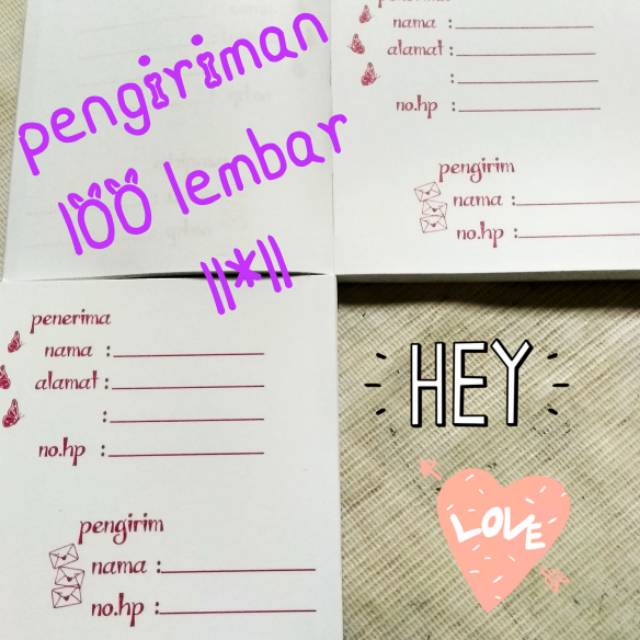 pengiriman
100 lembar
||*||
nama :
alamat :
:
no.hp :
pengirim
nama :
no.hp :
penerima
nama :
alamat :
:
no.hp :
pengirim
nama :
no.hp :
HEY
LOVE